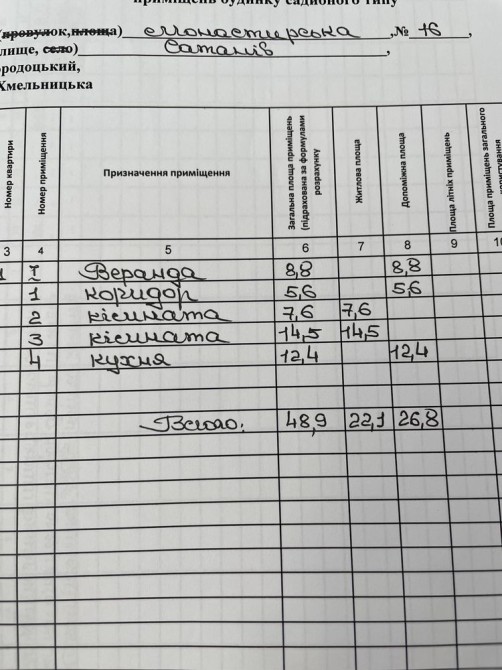 приміщень будинку садибного типу
(провулок,площа) Монастирська ,№ 16 ,
лище, село) Сатанів ,
ородоцький,
Хмельницька
Номер квартири
Номер приміщення
Призначення приміщення
Загальна площа приміщень (підрахована за формулами розрахунку
Житлова площа
Допоміжна площа
Площа літніх приміщень
Площа приміщень загального користування
3 4 5 6 7 8 9 10
1 I Веранда 8,8 8,8
1 коридор 5,6 5,6
2 кімната 7,6 7,6
3 кімната 14,5 14,5
4 кухня 12,4 12,4
Всього: 48,9 22,1 26,8